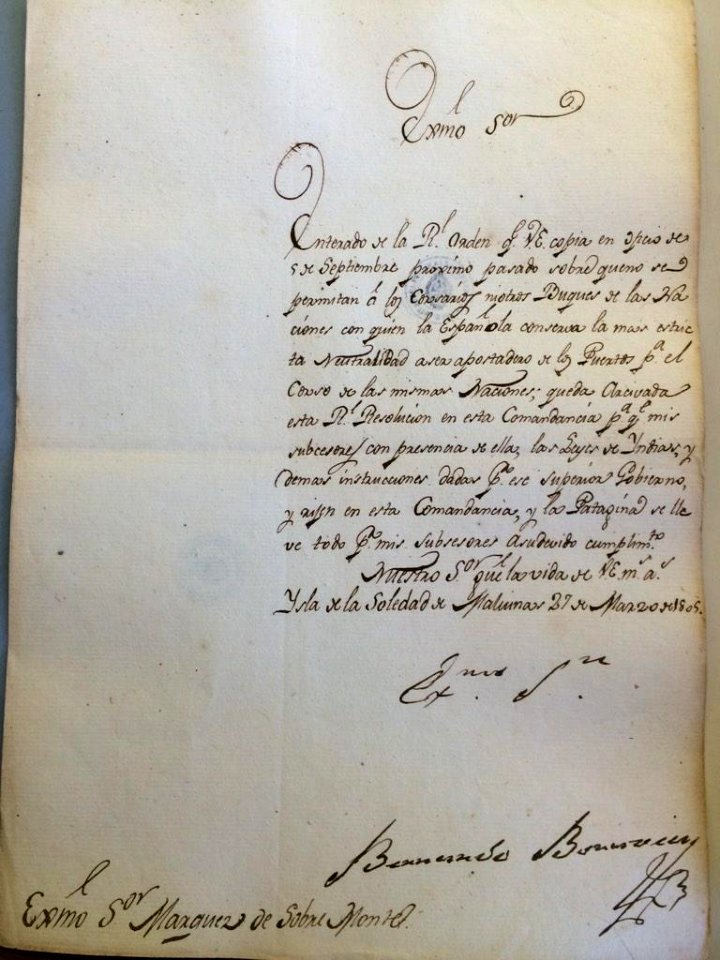 Exmo͞l Sor
Enterado de la Rl. Orden ql. VE. copia en oficio de
5 de Septiembre próximo pasado sobre queno se
permitan á los Corsarios niotros Buques de las Na
ciones con quien la Española conserva la mas estric
ta Nutralidad aser apostadero de los Puertos pa. el
Corso de las mismas Naciones; queda Arcivada
esta Rl. Resolucion en esta Comandancia pa. ql. mis
subcesores con presencia de ella, las Leyes de Yndias, y
demas instrucciones dadas pr. ese superior Gobierno,
y rijen en esta Comandancia, y la Patagina se lle
ve todo pr. mis subsesores asudevido cumplimto.
Nuestro Sor. gue. la vida de VE. ms. as.
Ysla de la Soledad de Malvinas 27 de Marzo de 1805.
Exmo. Sor.
Bernardo Bonavia
Exmo͞l Sor Marquez de Sobre Monte.